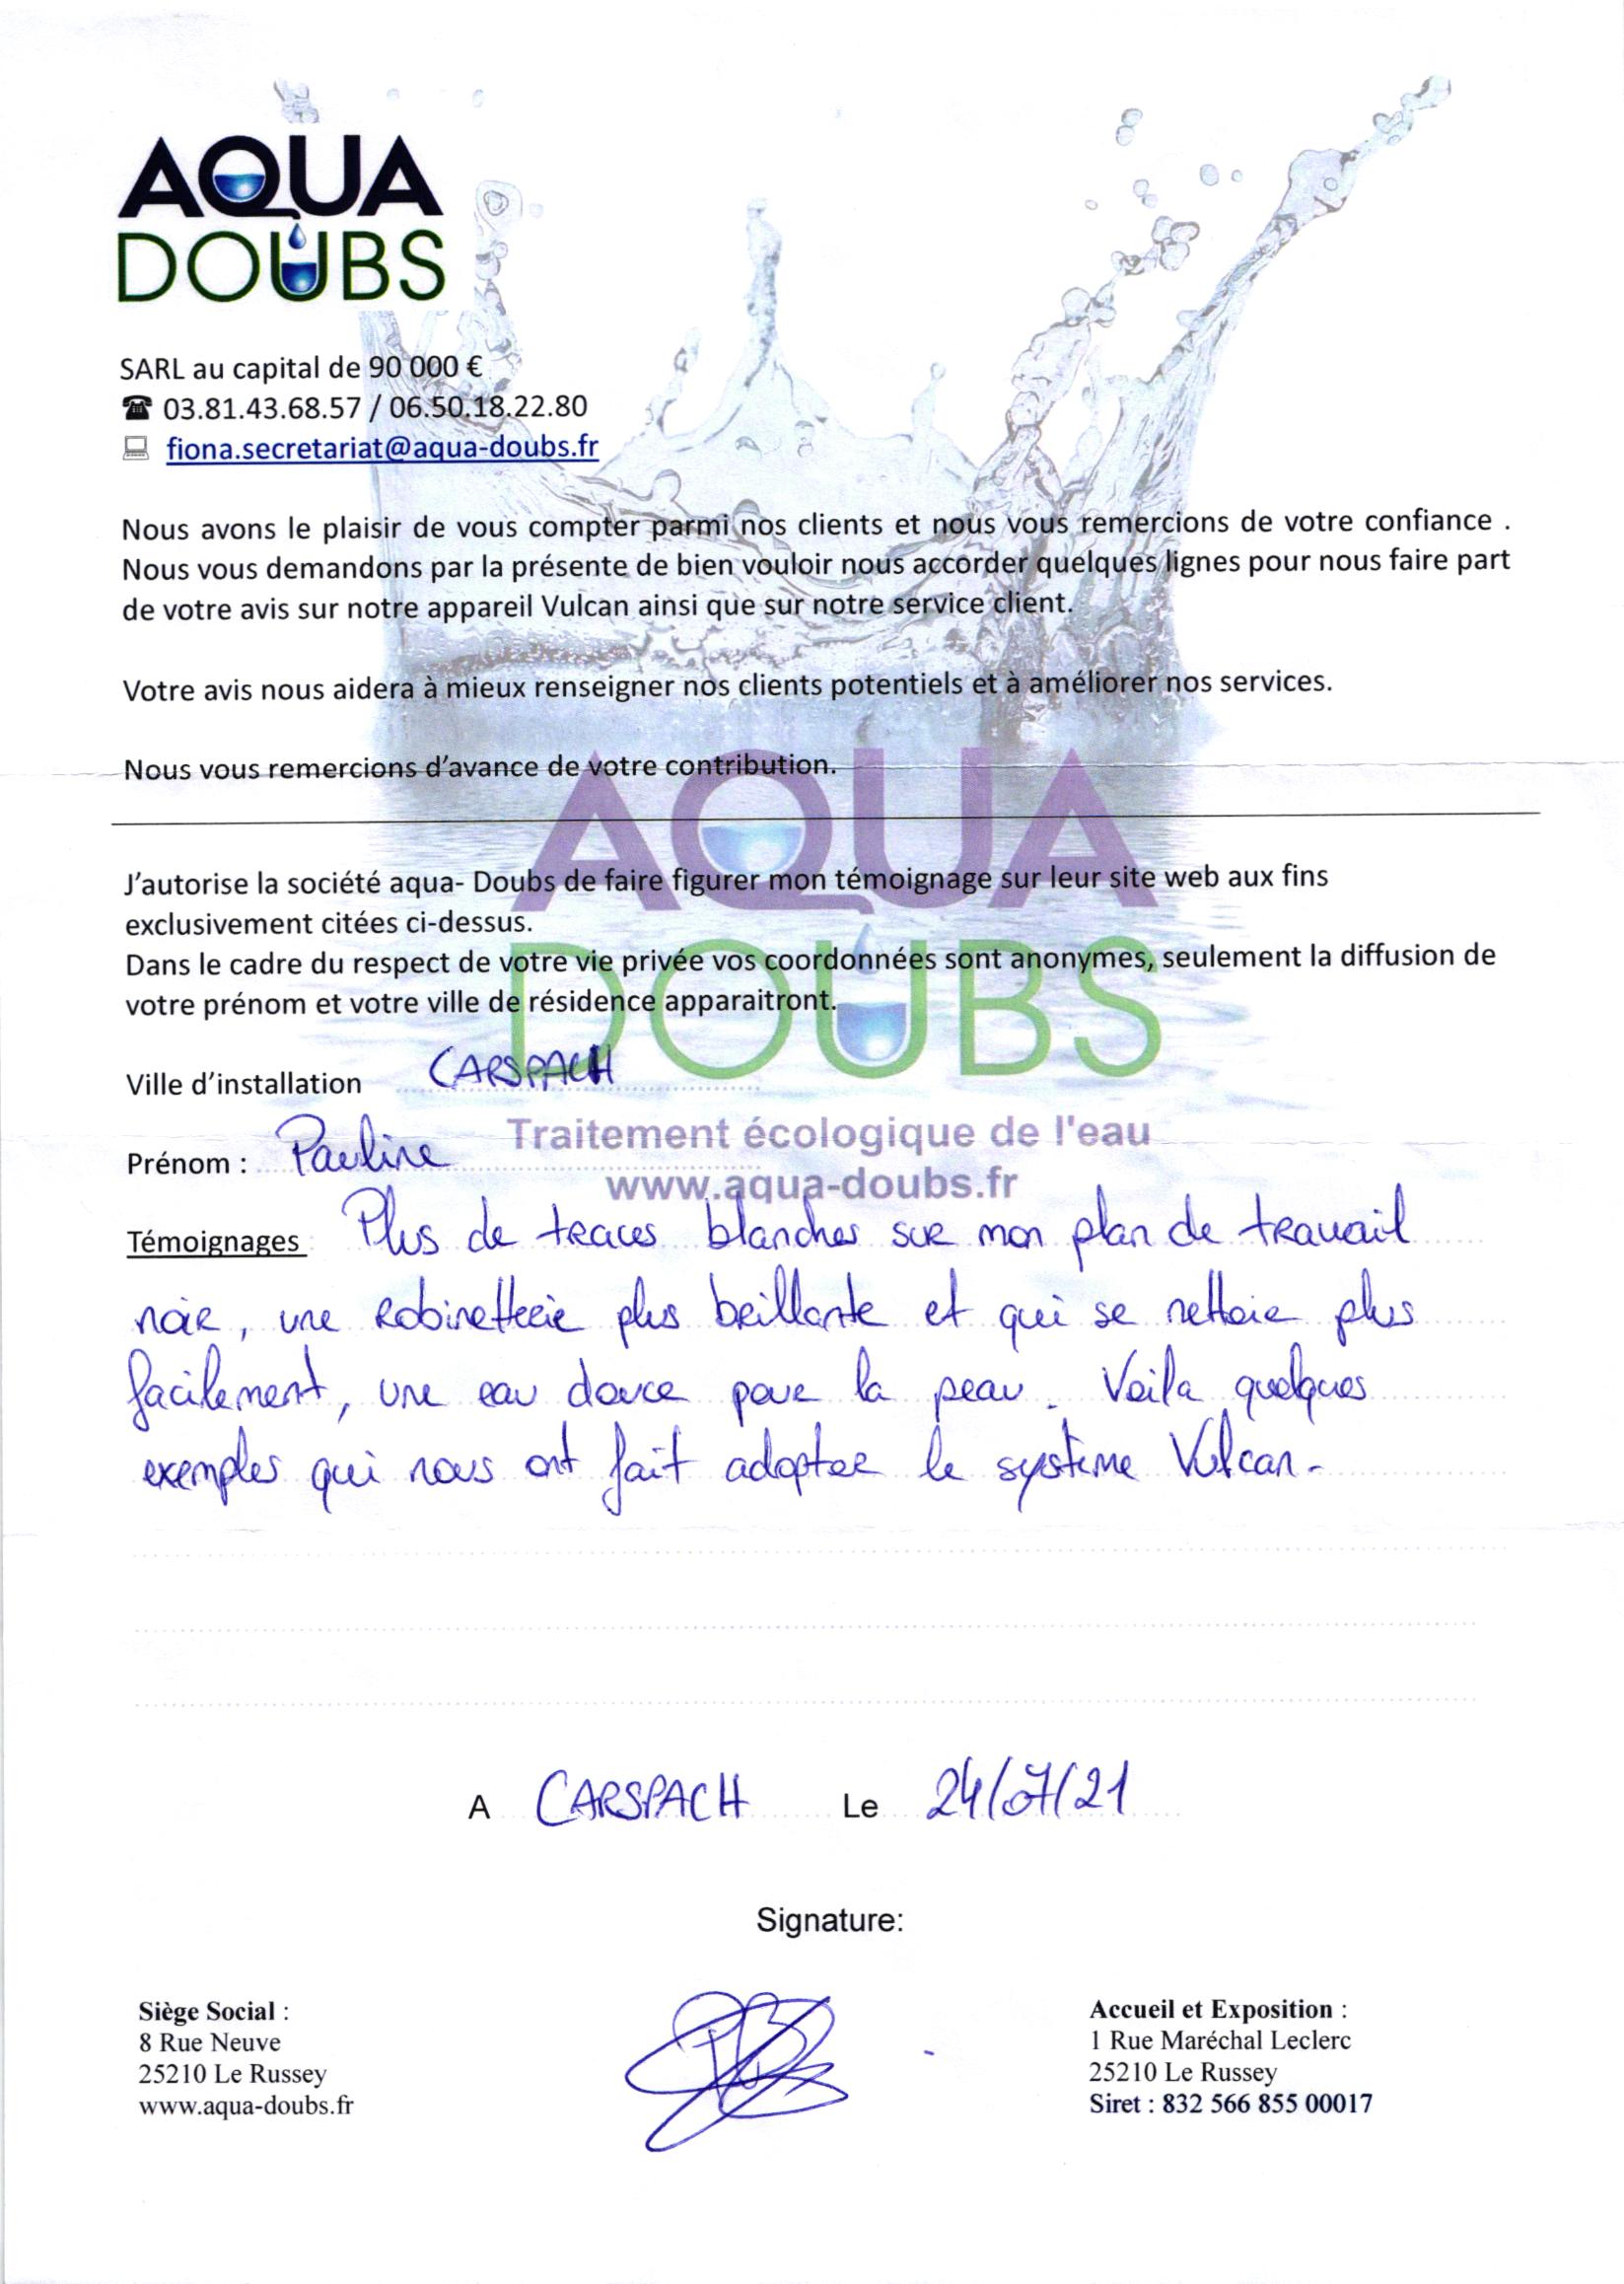 AQUA
DOUBS
SARL au capital de 90 000 €
03.81.43.68.57 / 06.50.18.22.80
fiona.secretariat@aqua-doubs.fr
Nous avons le plaisir de vous compter parmi nos clients et nous vous remercions de votre confiance .
Nous vous demandons par la présente de bien vouloir nous accorder quelques lignes pour nous faire part
de votre avis sur notre appareil Vulcan ainsi que sur notre service client.
Votre avis nous aidera à mieux renseigner nos clients potentiels et à améliorer nos services.
Nous vous remercions d'avance de votre contribution.
AQUA
J'autorise la société aqua- Doubs de faire figurer mon témoignage sur leur site web aux fins
exclusivement citées ci-dessus.
Dans le cadre du respect de votre vie privée vos coordonnées sont anonymes, seulement la diffusion de
votre prénom et votre ville de résidence apparaitront.
DOUBS
Ville d'installation CARSPACH
Traitement écologique de l'eau
Prénom : Pauline
www.aqua-doubs.fr
Témoignages : Plus de traces blanches sur mon plan de travail
noir, une robinetterie plus brillante et qui se nettoie plus
facilement, une eau douce pour la peau. Voila quelques
exemples qui nous ont fait adopter le système Vulcan.
A CARSPACH Le 24/07/21
Signature:
Siège Social :
8 Rue Neuve
25210 Le Russey
www.aqua-doubs.fr
Accueil et Exposition :
1 Rue Maréchal Leclerc
25210 Le Russey
Siret : 832 566 855 00017